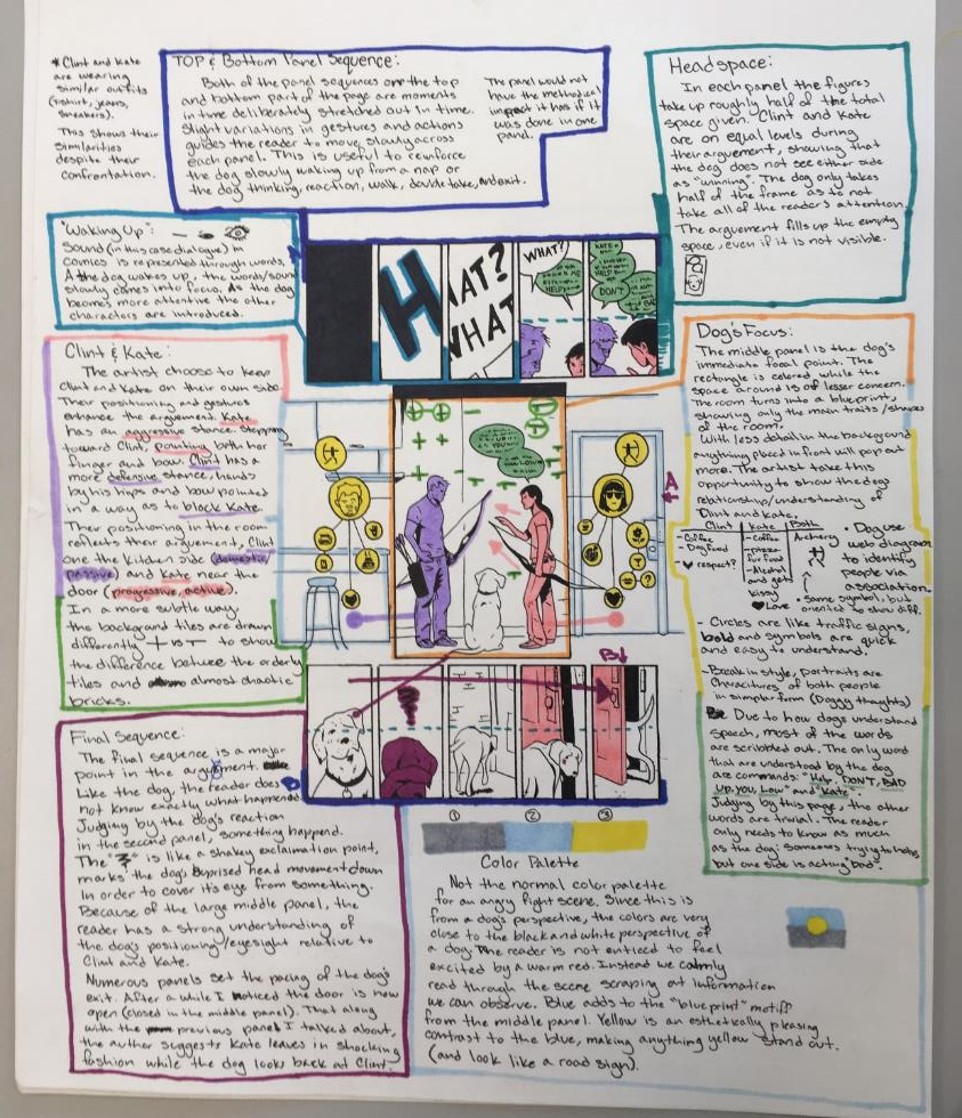 * Clint and Kate
are wearing
similar outfits
(tshirt, jeans,
sneakers).
This shows their
similarities
despite their
confrontation.
TOP & Bottom Panel Sequence:
Both of the panel sequences on the top
and bottom part of the page are moments
in time deliberately stretched out in time.
Slight variations in gestures and actions
guides the reader to move slowly across
each panel. This is useful to reinforce
the dog slowly waking up from a nap or
the dog thinking, reaction, walk, double take, and exit.
The panel would not
have the methodical
impact it has if it
was done in one
panel.
Headspace:
In each panel the figures
take up roughly half of the total
space given. Clint and Kate
are on equal levels during
their arguement, showing that
the dog does not see either side
as "winning". The dog only takes
half of the frame as to not
take all of the reader's attention.
The arguement fills up the empty
space, even if it is not visible.
"Waking Up":
Sound (in this case dialogue) in
comics is represented through words,
As the dog wakes up, the words/sound
slowly comes into focus. As the dog
becomes more attentive the other
characters are introduced.
H
HAT?
WHAT
WHAT?
HELP
KATE
HELP
DON'T
Clint & Kate:
The artist choose to keep
Clint and Kate on their own side.
Their positioning and gestures
enhance the arguement. Kate
has an aggressive stance. Stepping
toward Clint, pointing both her
finger and bow. Clint has a
more defensive stance, hands
by his hips and bow pointed
in a way as to block Kate.
Their positioning in the room
reflects their arguement, Clint
one the kitchen side (domestic,
passive) and Kate near the
door (progressive, active).
In a more subtle way,
the background tiles are drawn
differently + vs T to show
the difference between the orderly
tiles and almost chaotic
bricks.
A
B
Dog's Focus:
The middle panel is the dog's
immediate focal point. The
rectangle is colored while the
space around is of lesser concern.
The room turns into a blueprint,
showing only the main traits/shapes
of the room.
With less detail in the background
anything placed in front will pop out
more. The artist take this
opportunity to show the dog's
relationship/understanding of
Clint and Kate.
Clint Kate Both
- Coffee
- Dog food
- ♥ respect?
- Coffee
- pizza
for food
- Alcohol
and gets
kissy
♥ Love
Archery
• Dog use
web diagrams
to identify
people via
association.
• Same symbol, but
oriented to show diff.
- Circles are like traffic signs,
bold and symbols are quick
and easy to understand.
- Break in style, portraits are
characitures of both people
in simpler form (Doggy thoughts)
Due to how dogs understand
speech, most of the words
are scribbled out. The only word
that are understood by the dog
are commands: "Help, DON'T, BAD
UP, YOU, Low" and "Kate".
Judging by this page, the other
words are trivial. The reader
only needs to know as much
as the dog: Someone trying to help,
but one side is acting "bad."
Final Sequence:
The final sequence is a major
point in the argument.
Like the dog, the reader does
not know exactly what happened.
Judging by the dog's reaction
in the second panel, something happend.
The " " is like a shakey exclaimation point,
marks the dog's suprised head movement down
In order to cover it's eye from something.
Because of the large middle panel, the
reader has a strong understanding of
the dog's positioning/eyesight relative to
Clint and Kate.
Numerous panels set the pacing of the dog's
exit. After a while I noticed the door is now
open (closed in the middle panel). That along
with the previous panel I talked about,
the author suggests Kate leaves in shocking
fashion while the dog looks back at Clint.
① ② ③
Color Palette
Not the normal color palette
for an angry fight scene. Since this is
from a dog's perspective, the colors are very
close to the black and white perspective of
a dog. The reader is not enticed to feel
excited by a warm red. Instead we calmly
read through the scene scraping at information
we can observe. Blue adds to the "blueprint" motiff
from the middle panel. Yellow is an esthetically pleasing
contrast to the blue, making anything yellow stand out.
(and look like a road sign).